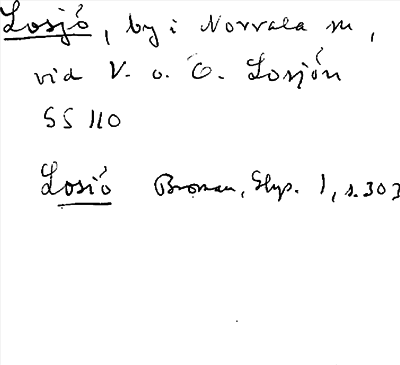 Losjö, by i Norrala sn,
vid V. o. Ö. Losjön
SS 110
Losiö Broman, Glys. 1, s. 303